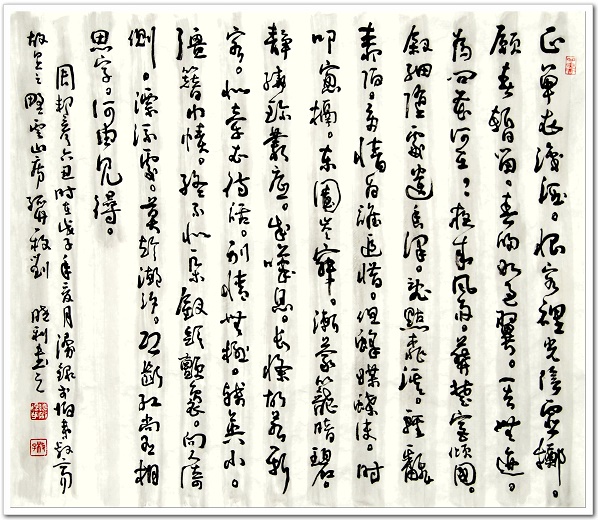 正單衣試酒。悵客裡光陰虛擲。
願春暫留。春歸如過翼。一去無迹。
為問花何在?夜來風雨。葬楚宮傾國。
釵鈿墮處遺香澤。亂點桃溪。輕翻
柳陌。多情為誰追惜。但蜂媒蝶使。時
叩窗槅。東園岑寂。漸蒙籠暗碧。
靜繞珍叢底。成嘆息。長條故惹行
客。似牽衣待話。別情無極。殘英小。
強簪巾幘。終不似一朵。釵頭顫裊。向人欹
側。漂流處。莫趁潮汐。恐斷紅尚有相
思字。何由見得。
周邦彥六丑時在戊子年夏月
故里之野雲山房 劉曉利書之